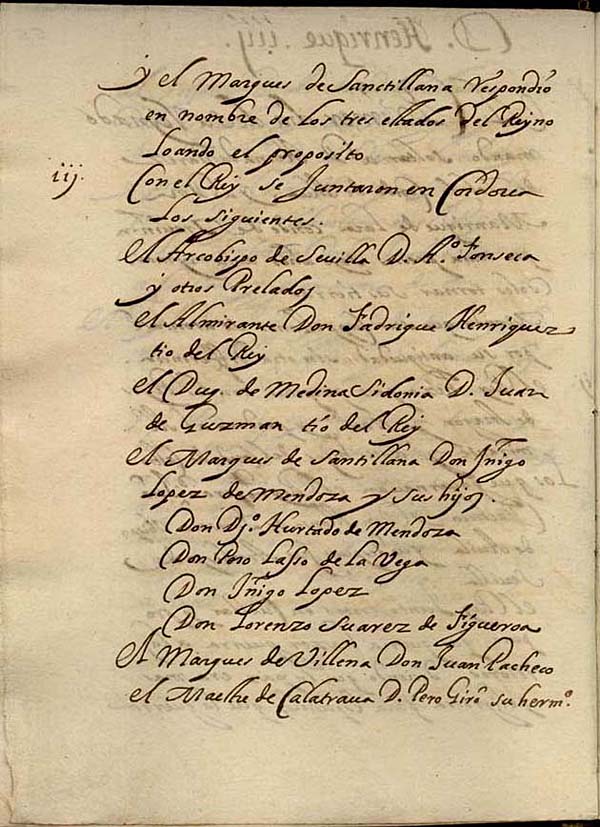 y el Marques de Sanctillana respondio
en nombre de los tres estados del Reyno
Loando el proposito
iij.
Con el Rey se Juntaron en Cordova
Los siguientes.
El Arcobispo de Sevilla D. Aº. Fonseca
y otros Prelados
el Almirante Don Fadrique Henriquez
tio del Rey
el Duq. de Medina Sidonia D. Juan
de Guzman tio del Rey
el Marques de Santillana Don Iñigo
Lopez de Mendoza y sus hijos.
Don Djº. Hurtado de Mendoza
Don Pero Lasso de la Vega
Don Iñigo Lopez
Don Lorenzo Suarez de Figueroa
el Marques de Villena Don Juan Pacheco
el Maestre de Calatrava D. Pero Girõ su hermº.